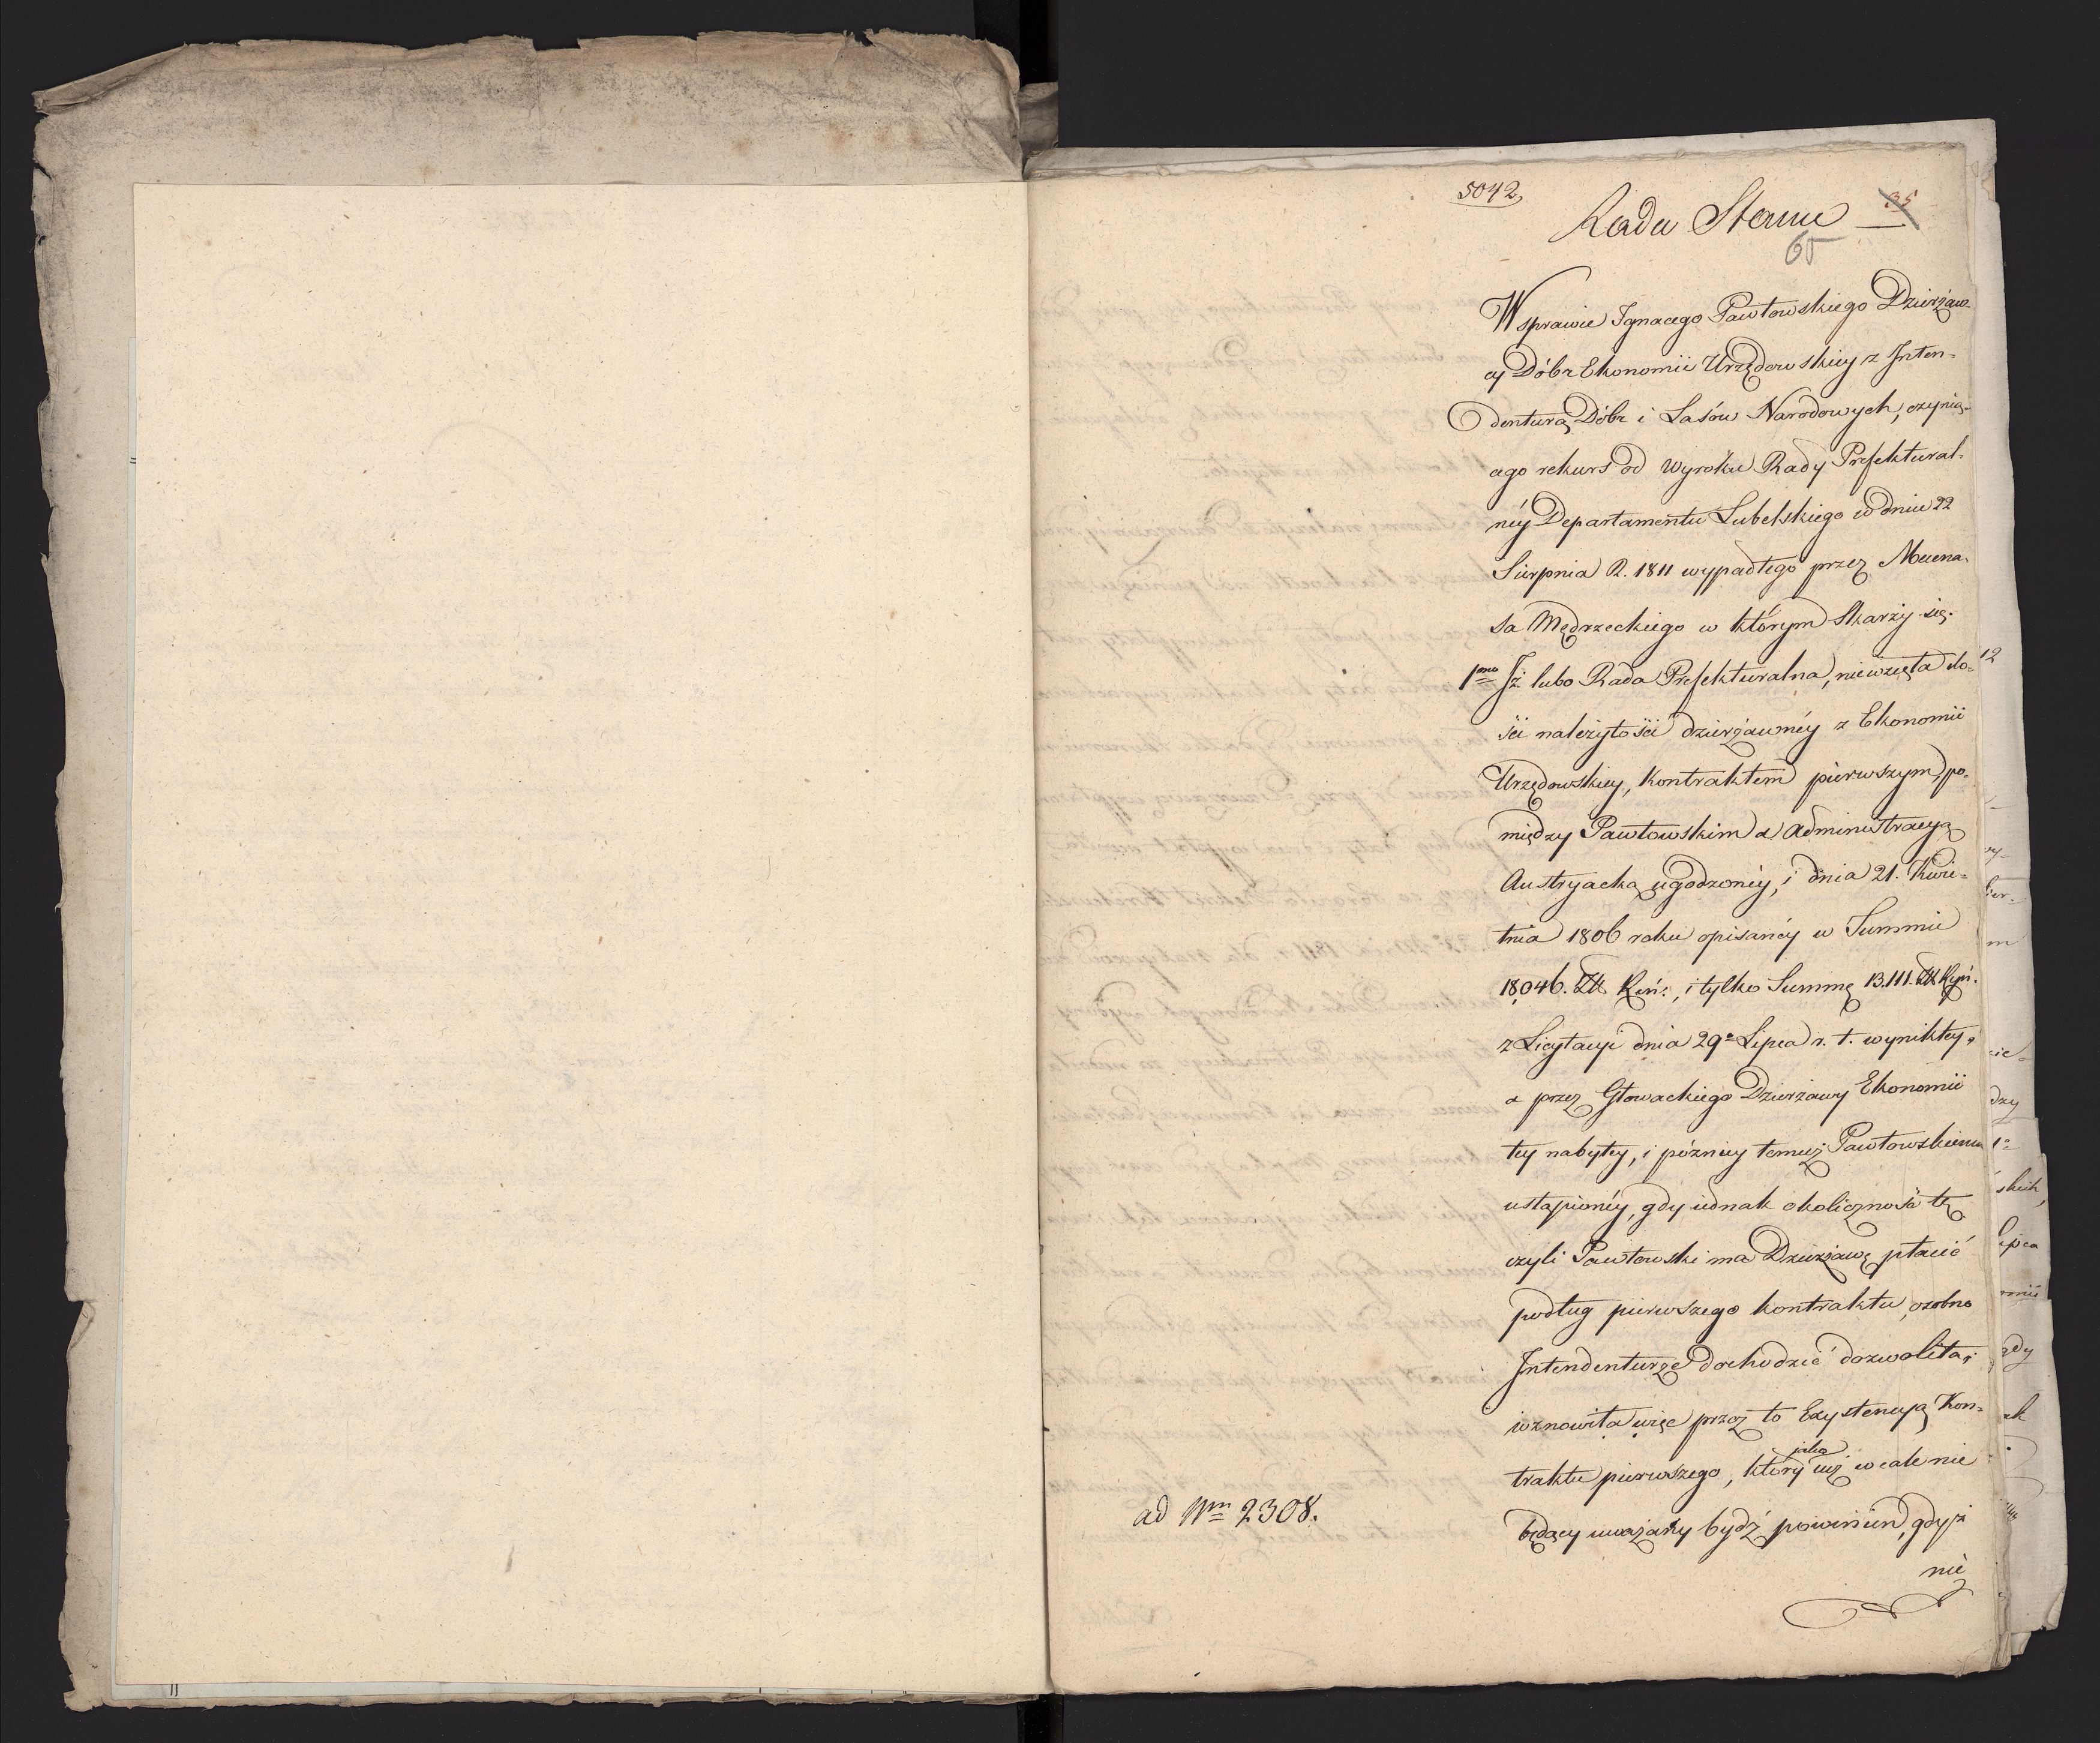 5042
Rada Stanu
35
65
W sprawie Ignacego Pawłowskiego Dzierżaw-
cy Dóbr Ekonomii Urzędowskiey z Inten-
denturą Dóbr i Lasów Narodowych, czynią-
cego rekurs od wyroku Rady Prefektural-
néy Departamentu Lubelskiego w dniu 22
Sierpnia R. 1811 wypadłego przez Mecena-
sa Mędrzeckiego w którym skarży się.
1mo Iż lubo Rada Prefekturalna, niewzięła do-
ści należytości dzierżawnéy z Ekonomii
Urzędowskiey, kontraktem pierwszym po-
między Pawłowskim a Administracyą
Austryacką ugodzonéy, i dnia 21. Kwie-
tnia 1806 roku opisanéy w Summie
18,046. Ren:, i tylko Summę 13.111. Ryń.
z Licytacyi dnia 29º Lipca r. t. wynikłey,
a przez Głowackiego Dzierżawy Ekonomii
tey nabytey, i późniey temuż Pawłowskiemu
ustąpionéy, gdy iednak okoliczność tę
czyli Pawłowski ma Dzierżawę płacić
podług pierwszego kontraktu, osobno
Intendenturze dochodzić dozwoliła;
wznowiła więc przez to Exystencyą Kon-
traktu pierwszego, który jako iuż wcale nie
będący uważany bydź powinien, gdyż
nie
ad Nrm 2308.
12